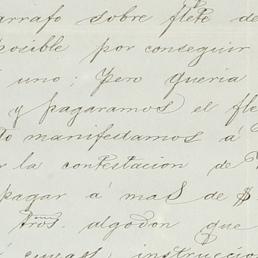 arrafo sobre flete de
posible por conseguir
uno; Pero queria
y pagaramos el fle
to manifestamos á
la contestacion de
pagar á mas de $
tros. algodon que
cuyas instruccio